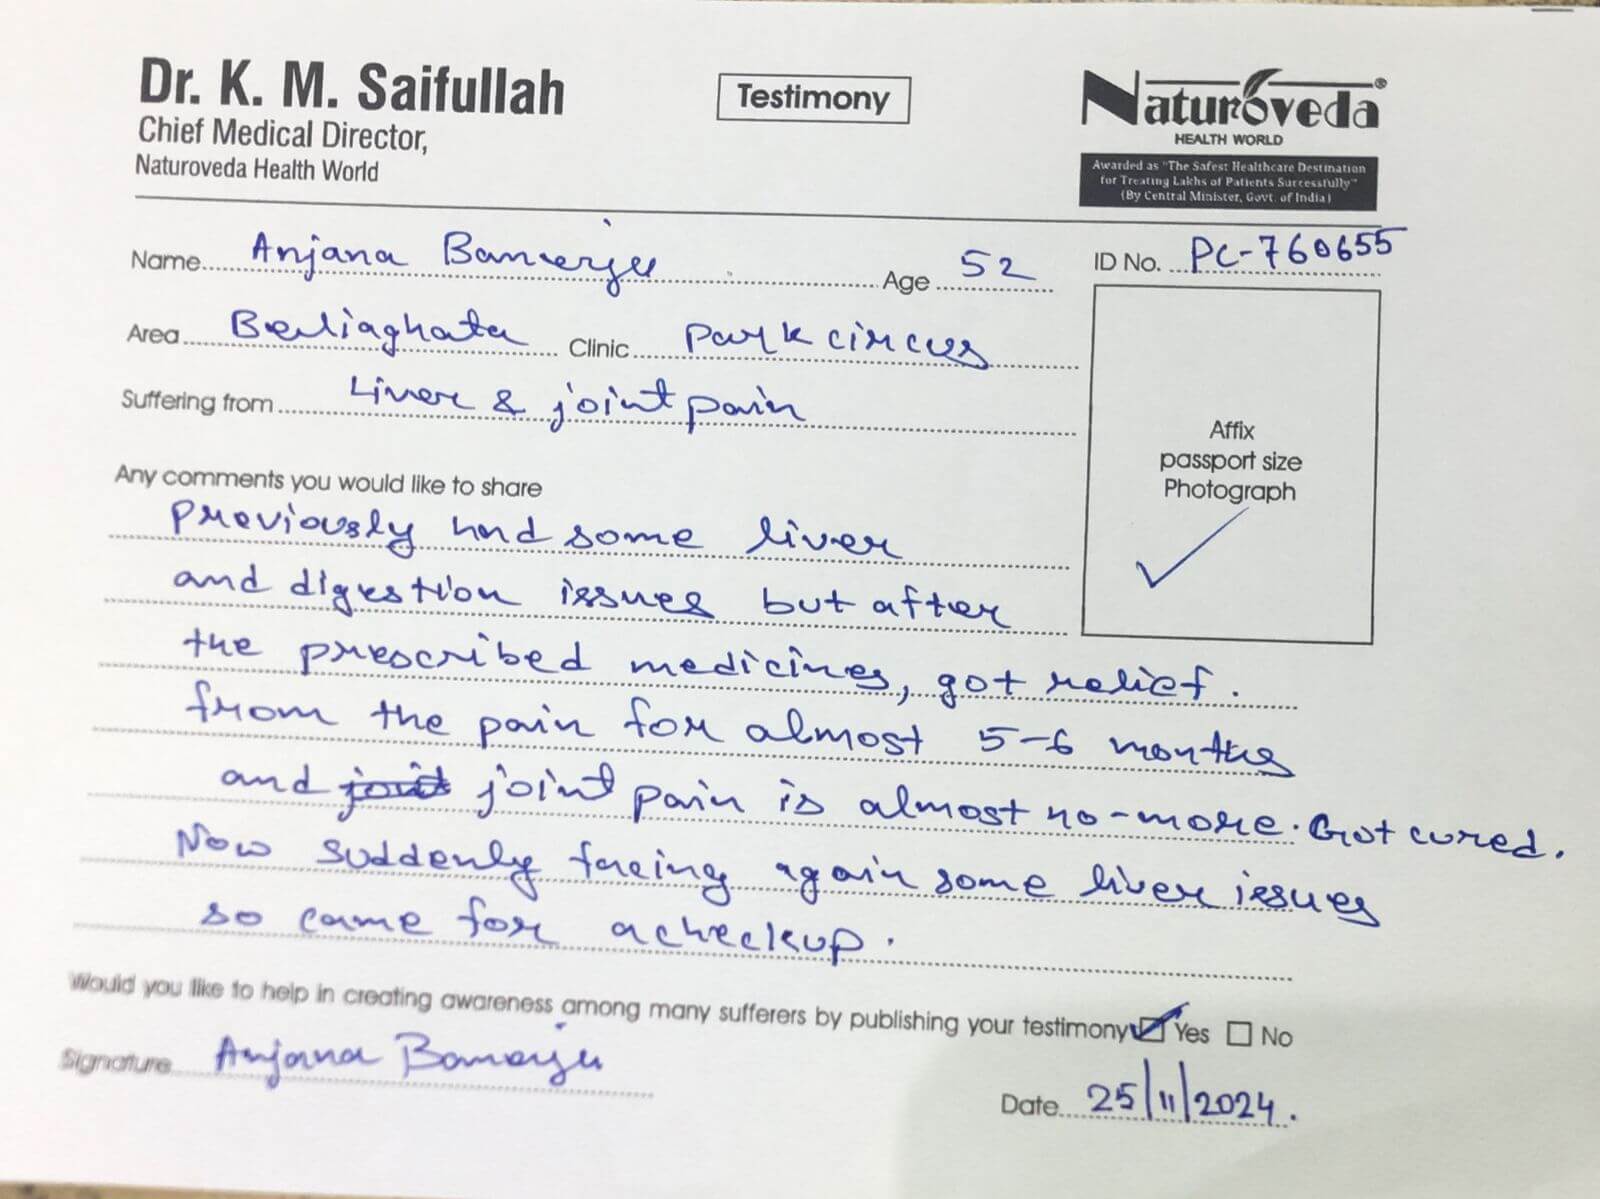 Dr. K. M. Saifullah
Chief Medical Director,
Naturoveda Health World
Testimony
Naturoveda®
HEALTH WORLD
Awarded as "The Safest Healthcare Destination
for Treating Lakhs of Patients Successfully"
(By Central Minister, Govt. of India)
Name Anjana Banerjee Age 52 ID No. PC-760655
Area Beliaghata Clinic Park circus
Suffering from Liver & joint pain
Affix
passport size
Photograph
Any comments you would like to share
Previously had some liver
and digestion issues but after
the prescribed medicines, got relief.
from the pain for almost 5-6 months
and joint pain is almost no-more. Got cured.
Now suddenly facing again some liver issues
so came for a checkup.
Would you like to help in creating awareness among many sufferers by publishing your testimony Yes No
Signature Anjana Banerjee
Date 25/11/2024.